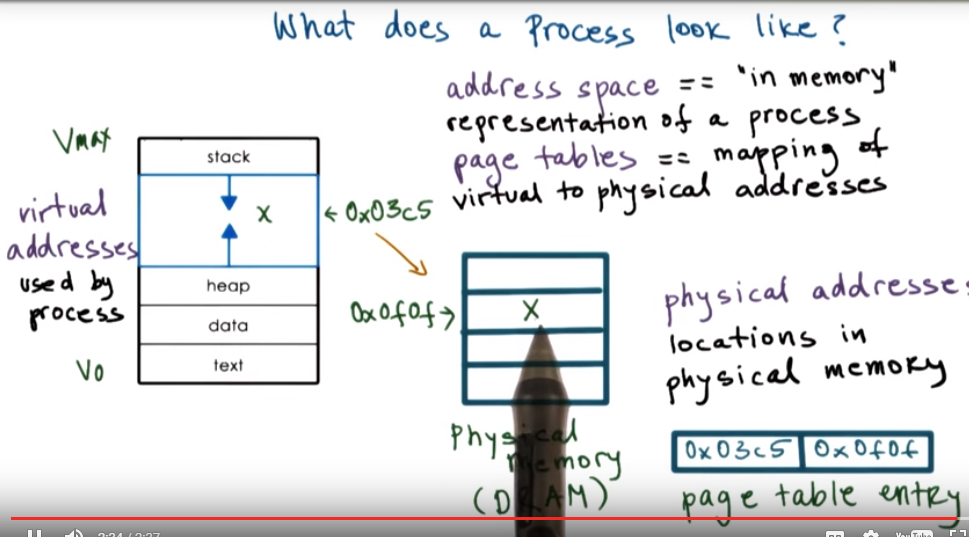 What does a Process look like?
address space == "in memory"
representation of a process
page tables == mapping of
virtual to physical addresses
Vmax
stack
virtual
addresses
used by
process
X
← 0x03c5
heap
data
text
V0
0x0f0f →
X
Physical
memory
(DRAM)
physical addresse
locations in
physical memory
0x03c5 0x0f0f
page table entry